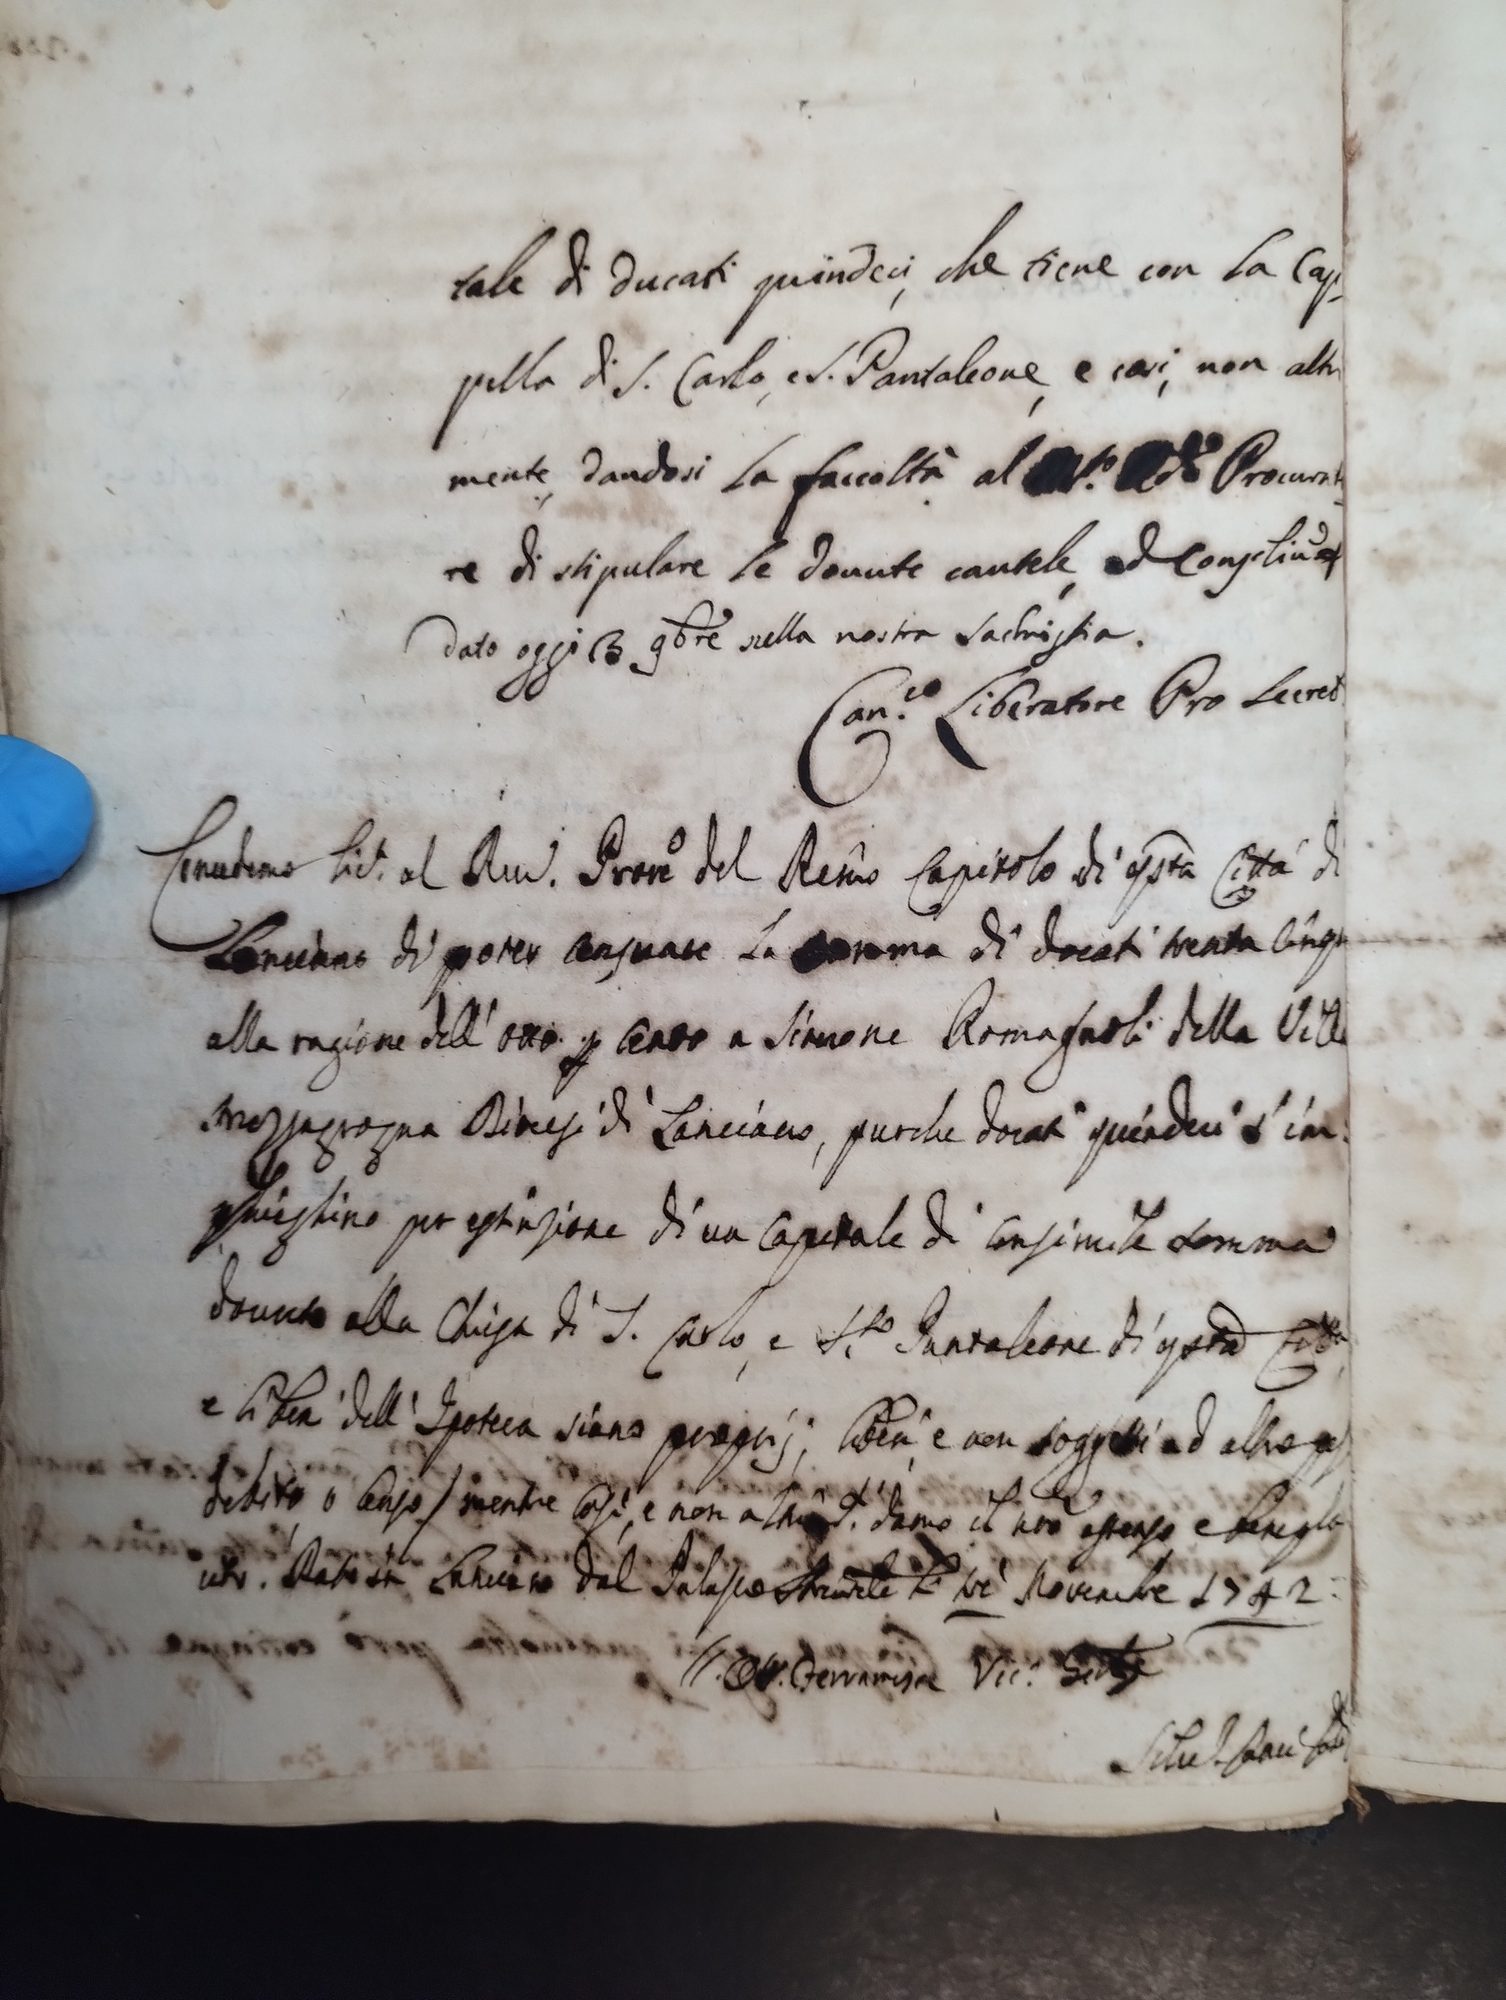 tale di ducati quindeci, che tiene con la Cap-
pella di S. Carlo, e S. Pantaleone, e cosi, non altri
mente, dandosi la faccoltà al Procurato-
re di stipulare le dovute cautele, ed
Dato oggi 9bre nella nostra Sachristia.
Can.co Liberatore Pro Secret
Concedemo lic. al Rev. Proc.e del Remo Capitolo di qsta Città di
Lanciano di poter censuare la somma di docati trenta cinque
alla ragione dell' otto p cento a Simone Romagnoli della Villa
Mozzagrogna Diocesi di Lanciano, purche docati quindeci s' im-
pieghino per estinzione di un capitale di consimile somma
dovuto alla Chiesa di S. Carlo, e S.to Pantaleone di qsta Città
e li beni dell' Ipoteca siano proprij, liberi, e non soggetti ad altro
debito, o censo, mentre così, e non altri damo il nro assenso e
Dato in Lanciano dal Palazzo li tré Novembre 1742:
Vic. Gen.le